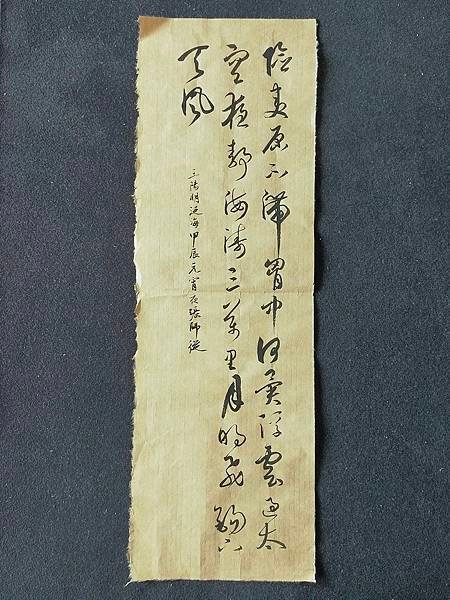 險夷原不滯胷中何異浮雲過太
空夜靜海濤三萬里月明飛錫下
天風
王陽明泛海甲辰元宵夜張師從